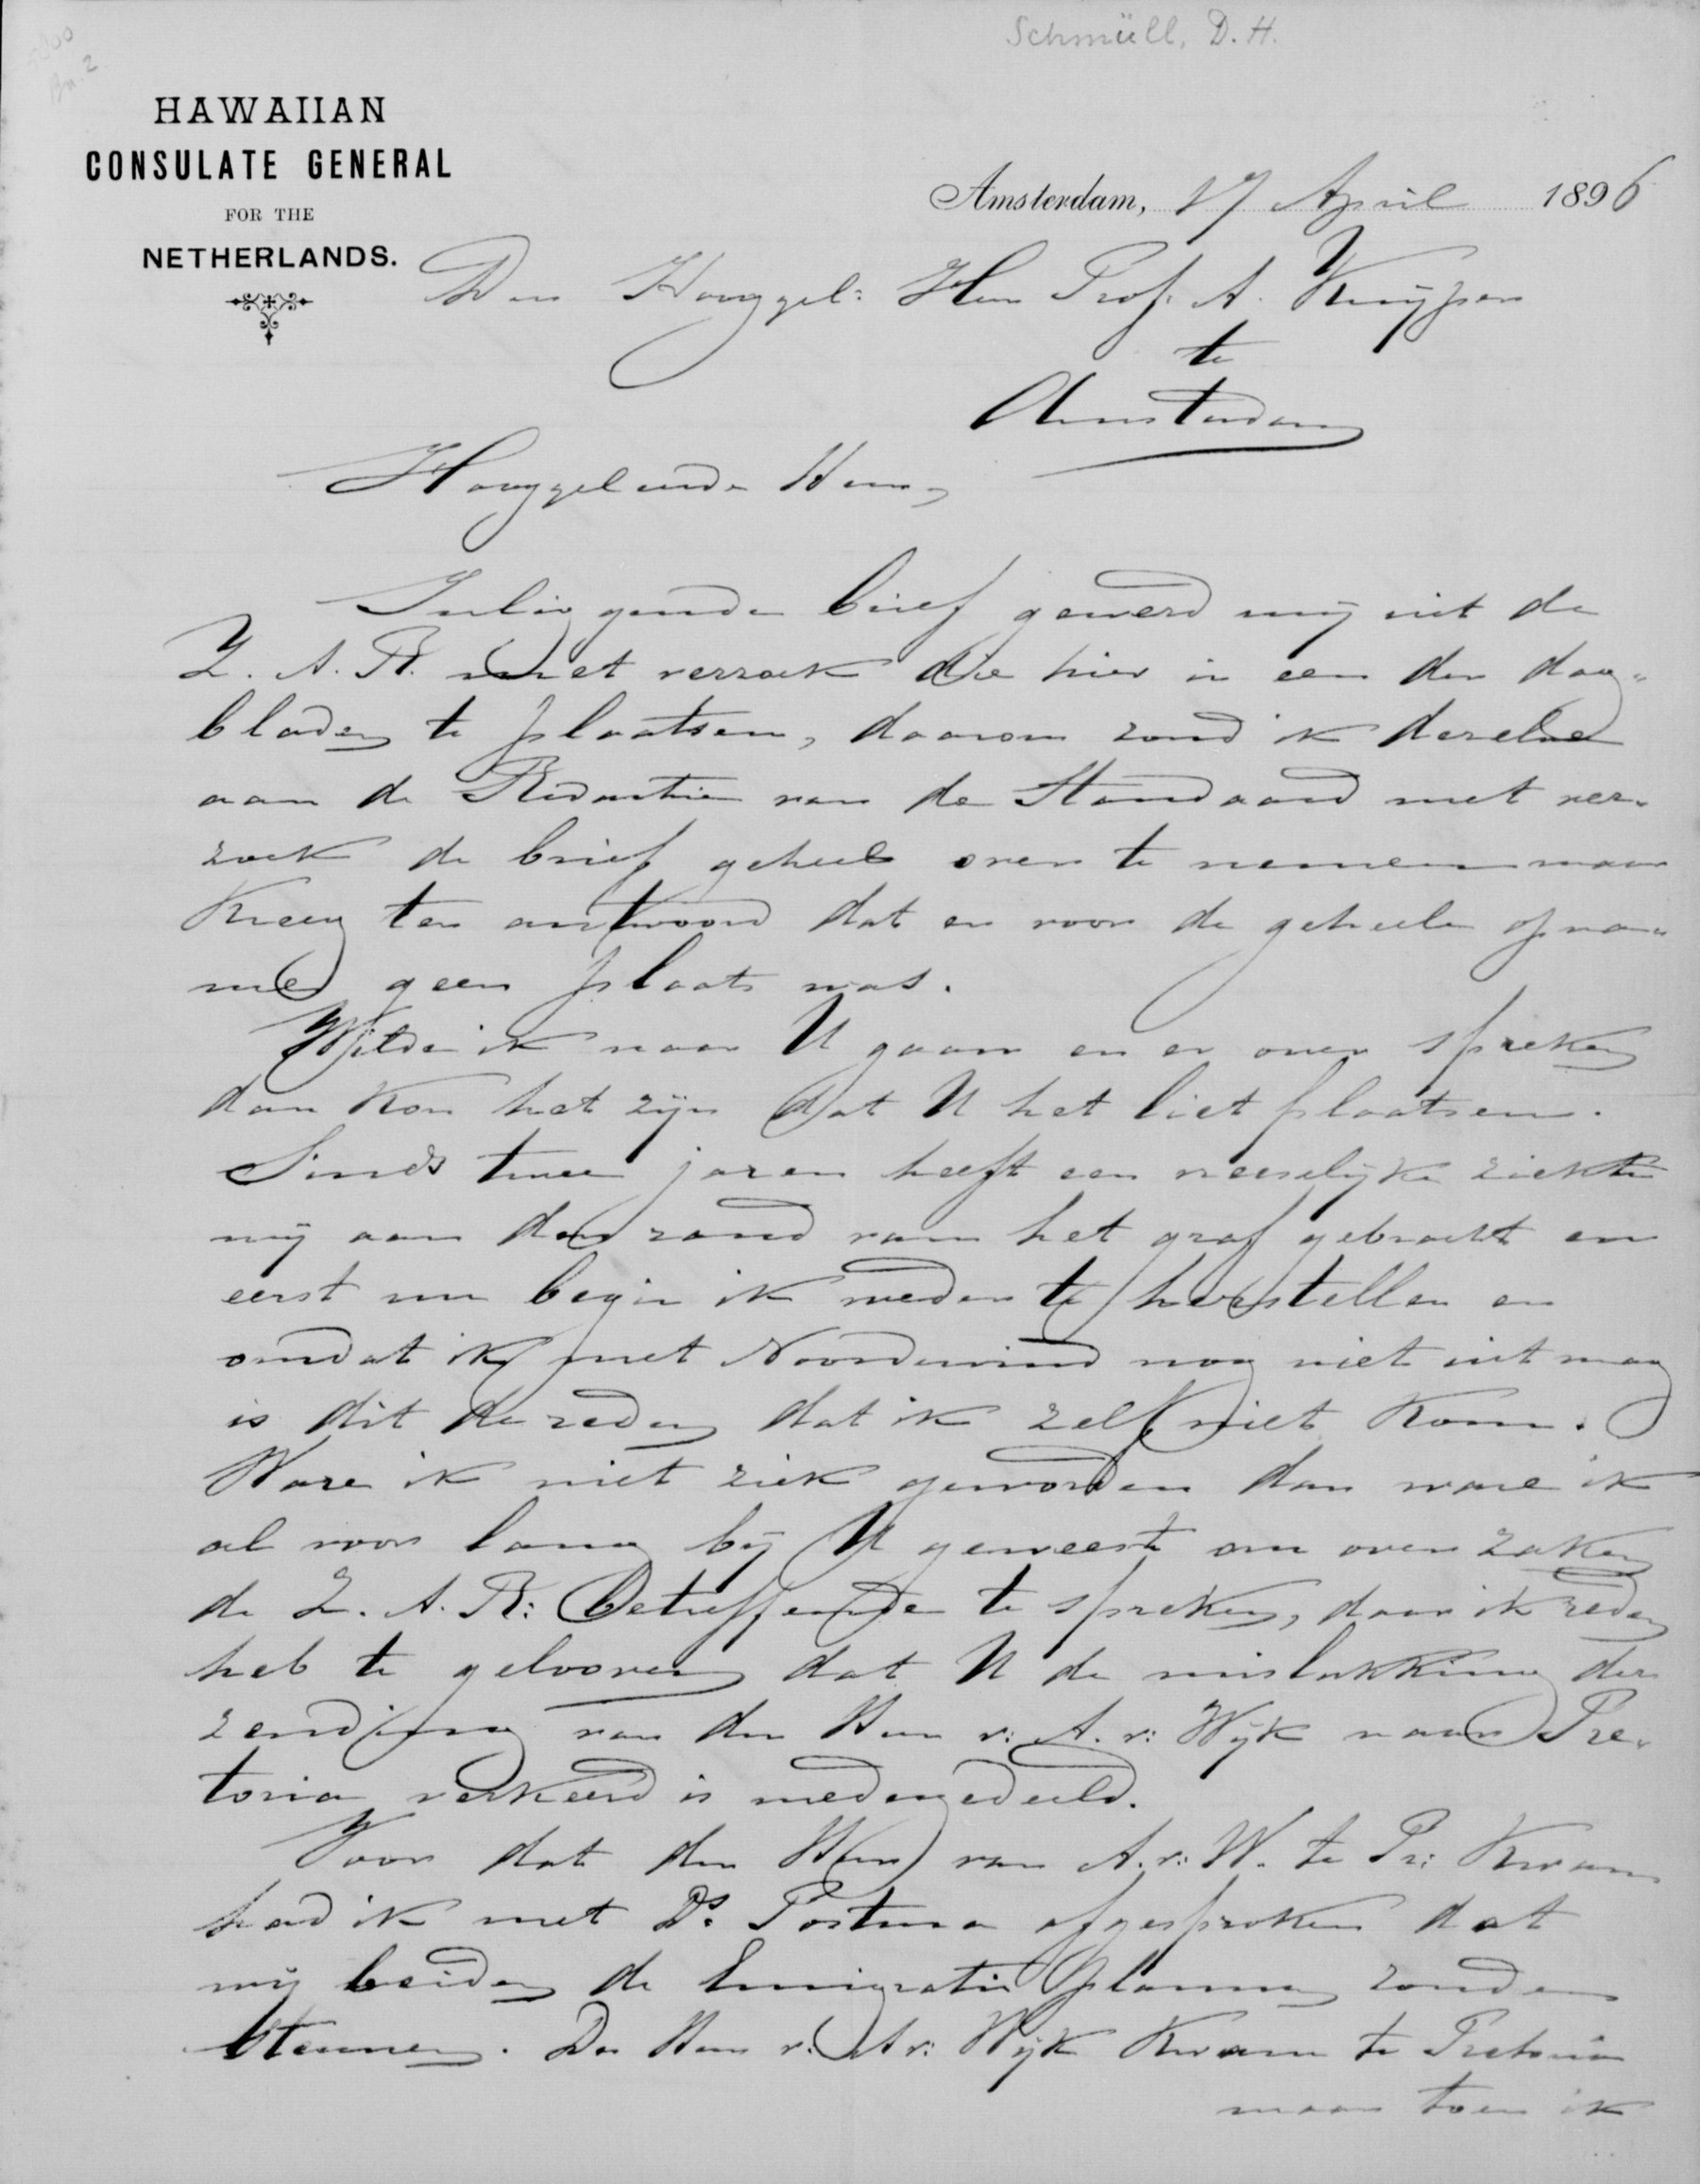 Schmüll, D. H.
HAWAIIAN
CONSULATE GENERAL
FOR THE
NETHERLANDS.
Amsterdam, 17 April 1896
Den Hooggel: Heer Prof. A. Kuijper
te
Amsterdam
Hooggeleerde Heer,
Inliggende brief gewerd mij uit de
Z. A. R. met verzoek die hier in een der dag-
bladen te plaatsen, daarom zond ik dezelve
aan de Redactie van de Standaard met ver-
zoek de brief geheel over te nemen maar
kreeg ten antwoord dat er voor de geheele opna-
me geen plaats was.
Wilde ik naar U gaan en er over spreken
dan kon het zijn dat U het liet plaatsen.
Sinds twee jaren heeft een vreeselijke ziekte
mij aan den rand van het graf gebracht en
eerst nu begin ik weder te herstellen en
omdat ik met Noordewind nog niet uit mag
is dit de reden dat ik zelf niet kom.
Ware ik niet ziek geworden dan ware ik
al voor lang bij U geweest om over zaken
de Z. A. R: betreffende te spreken, daar ik reden
heb te gelooven dat U de mislukking der
zending van den Heer v: A. v: Wijk naar Pre-
toria verkeerd is medegedeeld.
Voor dat den Heer van A. v: W. te Pr: kwam
had ik met Ds. Postma afgesproken dat
wij beiden de Emigratie plannen zouden
steunen. De Heer v: A v: Wijk kwam te Pretoria
maar toen ik